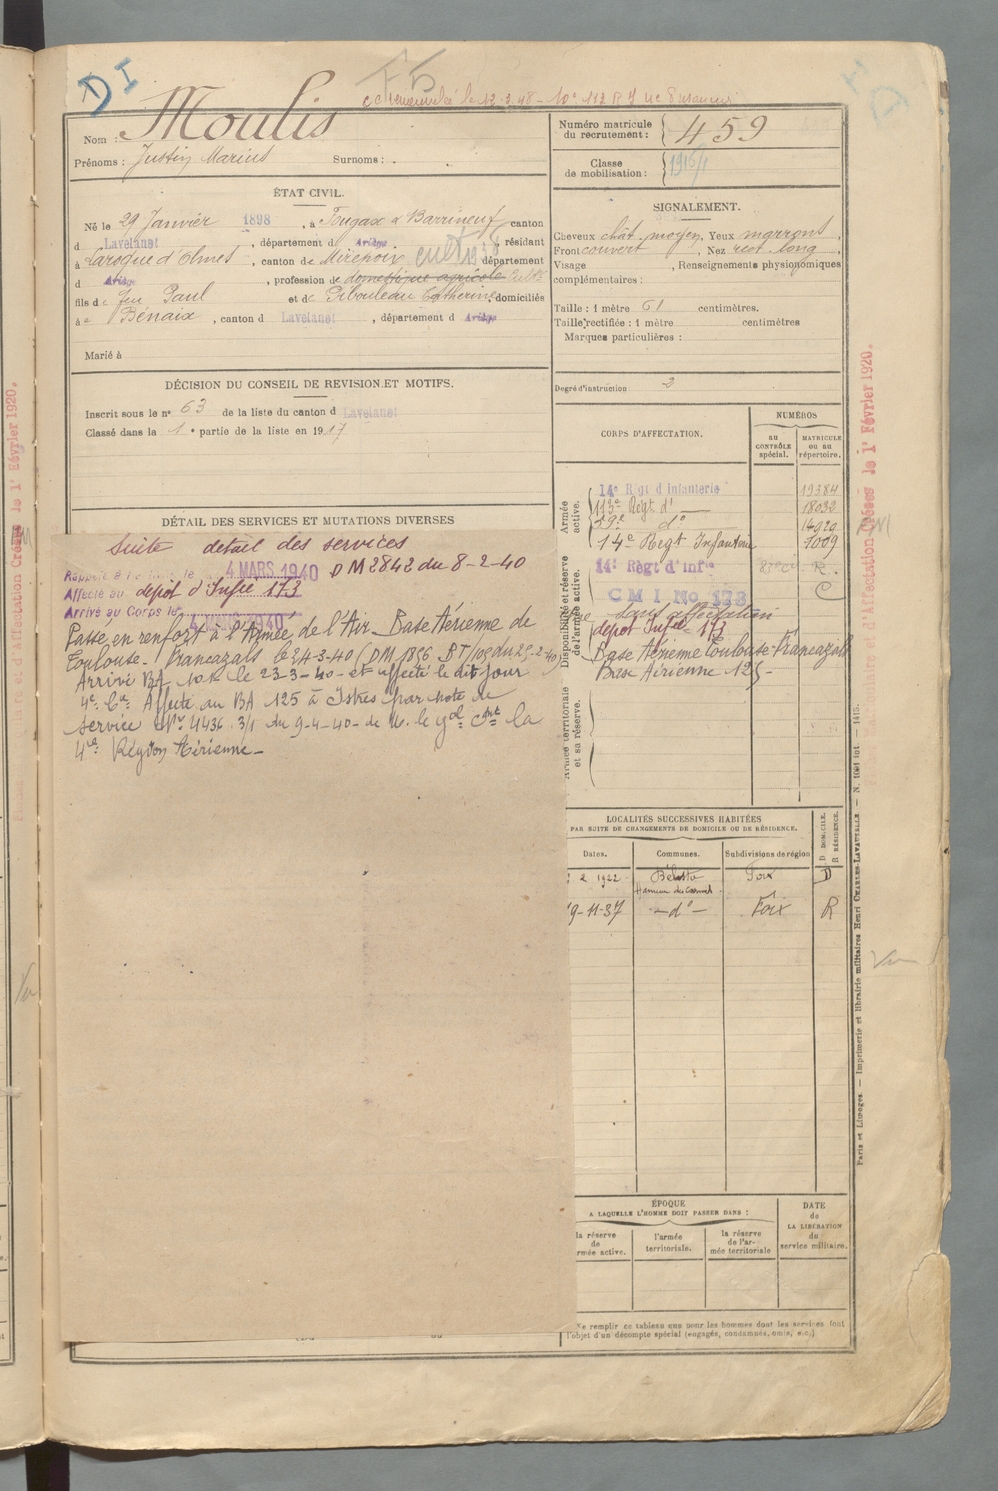 DI
F5
le 12.3.48 - 10e
Nom : Moulis
Prénoms : Justin Marius Surnoms : .
Numéro matricule du recrutement : 459
Classe de mobilisation :
ÉTAT CIVIL.
Né le 29 Janvier 1898, à Fougax & Barrineuf canton
d Lavelanet, département d Ariège, résidant
à Laroque d'Olmes, canton de Mirepoix cult 1938 département
d Ariège, profession de domestique agricole Cult.
fils de feu Paul et de Pibouleau Catherine, domiciliés
à Bénaix, canton d Lavelanet, département d Ariège
Marié à
SIGNALEMENT.
Cheveux chât. moyen, Yeux marrons,
Front couvert, Nez rect. long,
Visage , Renseignements physionomiques
complémentaires :
Taille : 1 mètre 61 centimètres.
Taille rectifiée : 1 mètre centimètres
Marques particulières :
Degré d'instruction 2
DÉCISION DU CONSEIL DE REVISION ET MOTIFS.
Inscrit sous le n° 63 de la liste du canton d Lavelanet
Classé dans la 1e partie de la liste en 1917
DÉTAIL DES SERVICES ET MUTATIONS DIVERSES
Suite détail des services
Rappelé à l' le 4 MARS 1940 DM 2842 du 8-2-40
Affecté au dépot d'Infie 173
Arrivé au Corps le 4 MARS 1940
Passé en renfort à l'Armée de l'Air Base Aérienne de
Toulouse - Francazals le 24-3-40 (DM 1856 BT/ du 25-2-40)
Arrivé BA 101 le 23-3-40 - et affecté le dit jour
4e Cie Affecté au BA 125 à Istres par note de
service No 4436 3/1 du 9-4-40 - de M. le Gal Cmt la
4e Région Aérienne -
CORPS D'AFFECTATION.
NUMÉROS
au CONTRÔLE spécial.
MATRICULE ou au répertoire.
Armée active.
14e Régt d'infanterie 19384
113e Régt d° 18032
19e d° 14920
14e Régt Infanterie 1009
Disponibilité et réserve de l'armée active.
14e Régt d'Infie R.
C M I No 173 C
sans affectation
depot Infie 173
Base Aérienne Toulouse-Francazals
Base Aérienne 125 -
Armée territoriale et sa réserve.
LOCALITÉS SUCCESSIVES HABITÉES
PAR SUITE DE CHANGEMENTS DE DOMICILE OU DE RÉSIDENCE.
Dates.
Communes.
Subdivisions de région
D DOMICILE.
R RÉSIDENCE.
2 1922 Bélesta Foix D
Hameau du
9-11-37 - d° - Foix R
ÉPOQUE
A LAQUELLE L'HOMME DOIT PASSER DANS :
la réserve de
rmée active.
l'armée territoriale.
la réserve de l'armée territoriale
DATE de LA LIBÉRATION du service militaire.
Ne remplir ce tableau que pour les hommes dont les services font
l'objet d'un décompte spécial (engagés, condamnés, omis, e.c.)
Paris et Limoges. — Imprimerie et librairie militaires Henri CHARLES-LAVAUZELLE — N. 1091 tot. — 1415.
ire et d'Affectation Créées le 1er Février 1920.
culaire et d'Affectation Créées le 1er Février 1920.
Vu